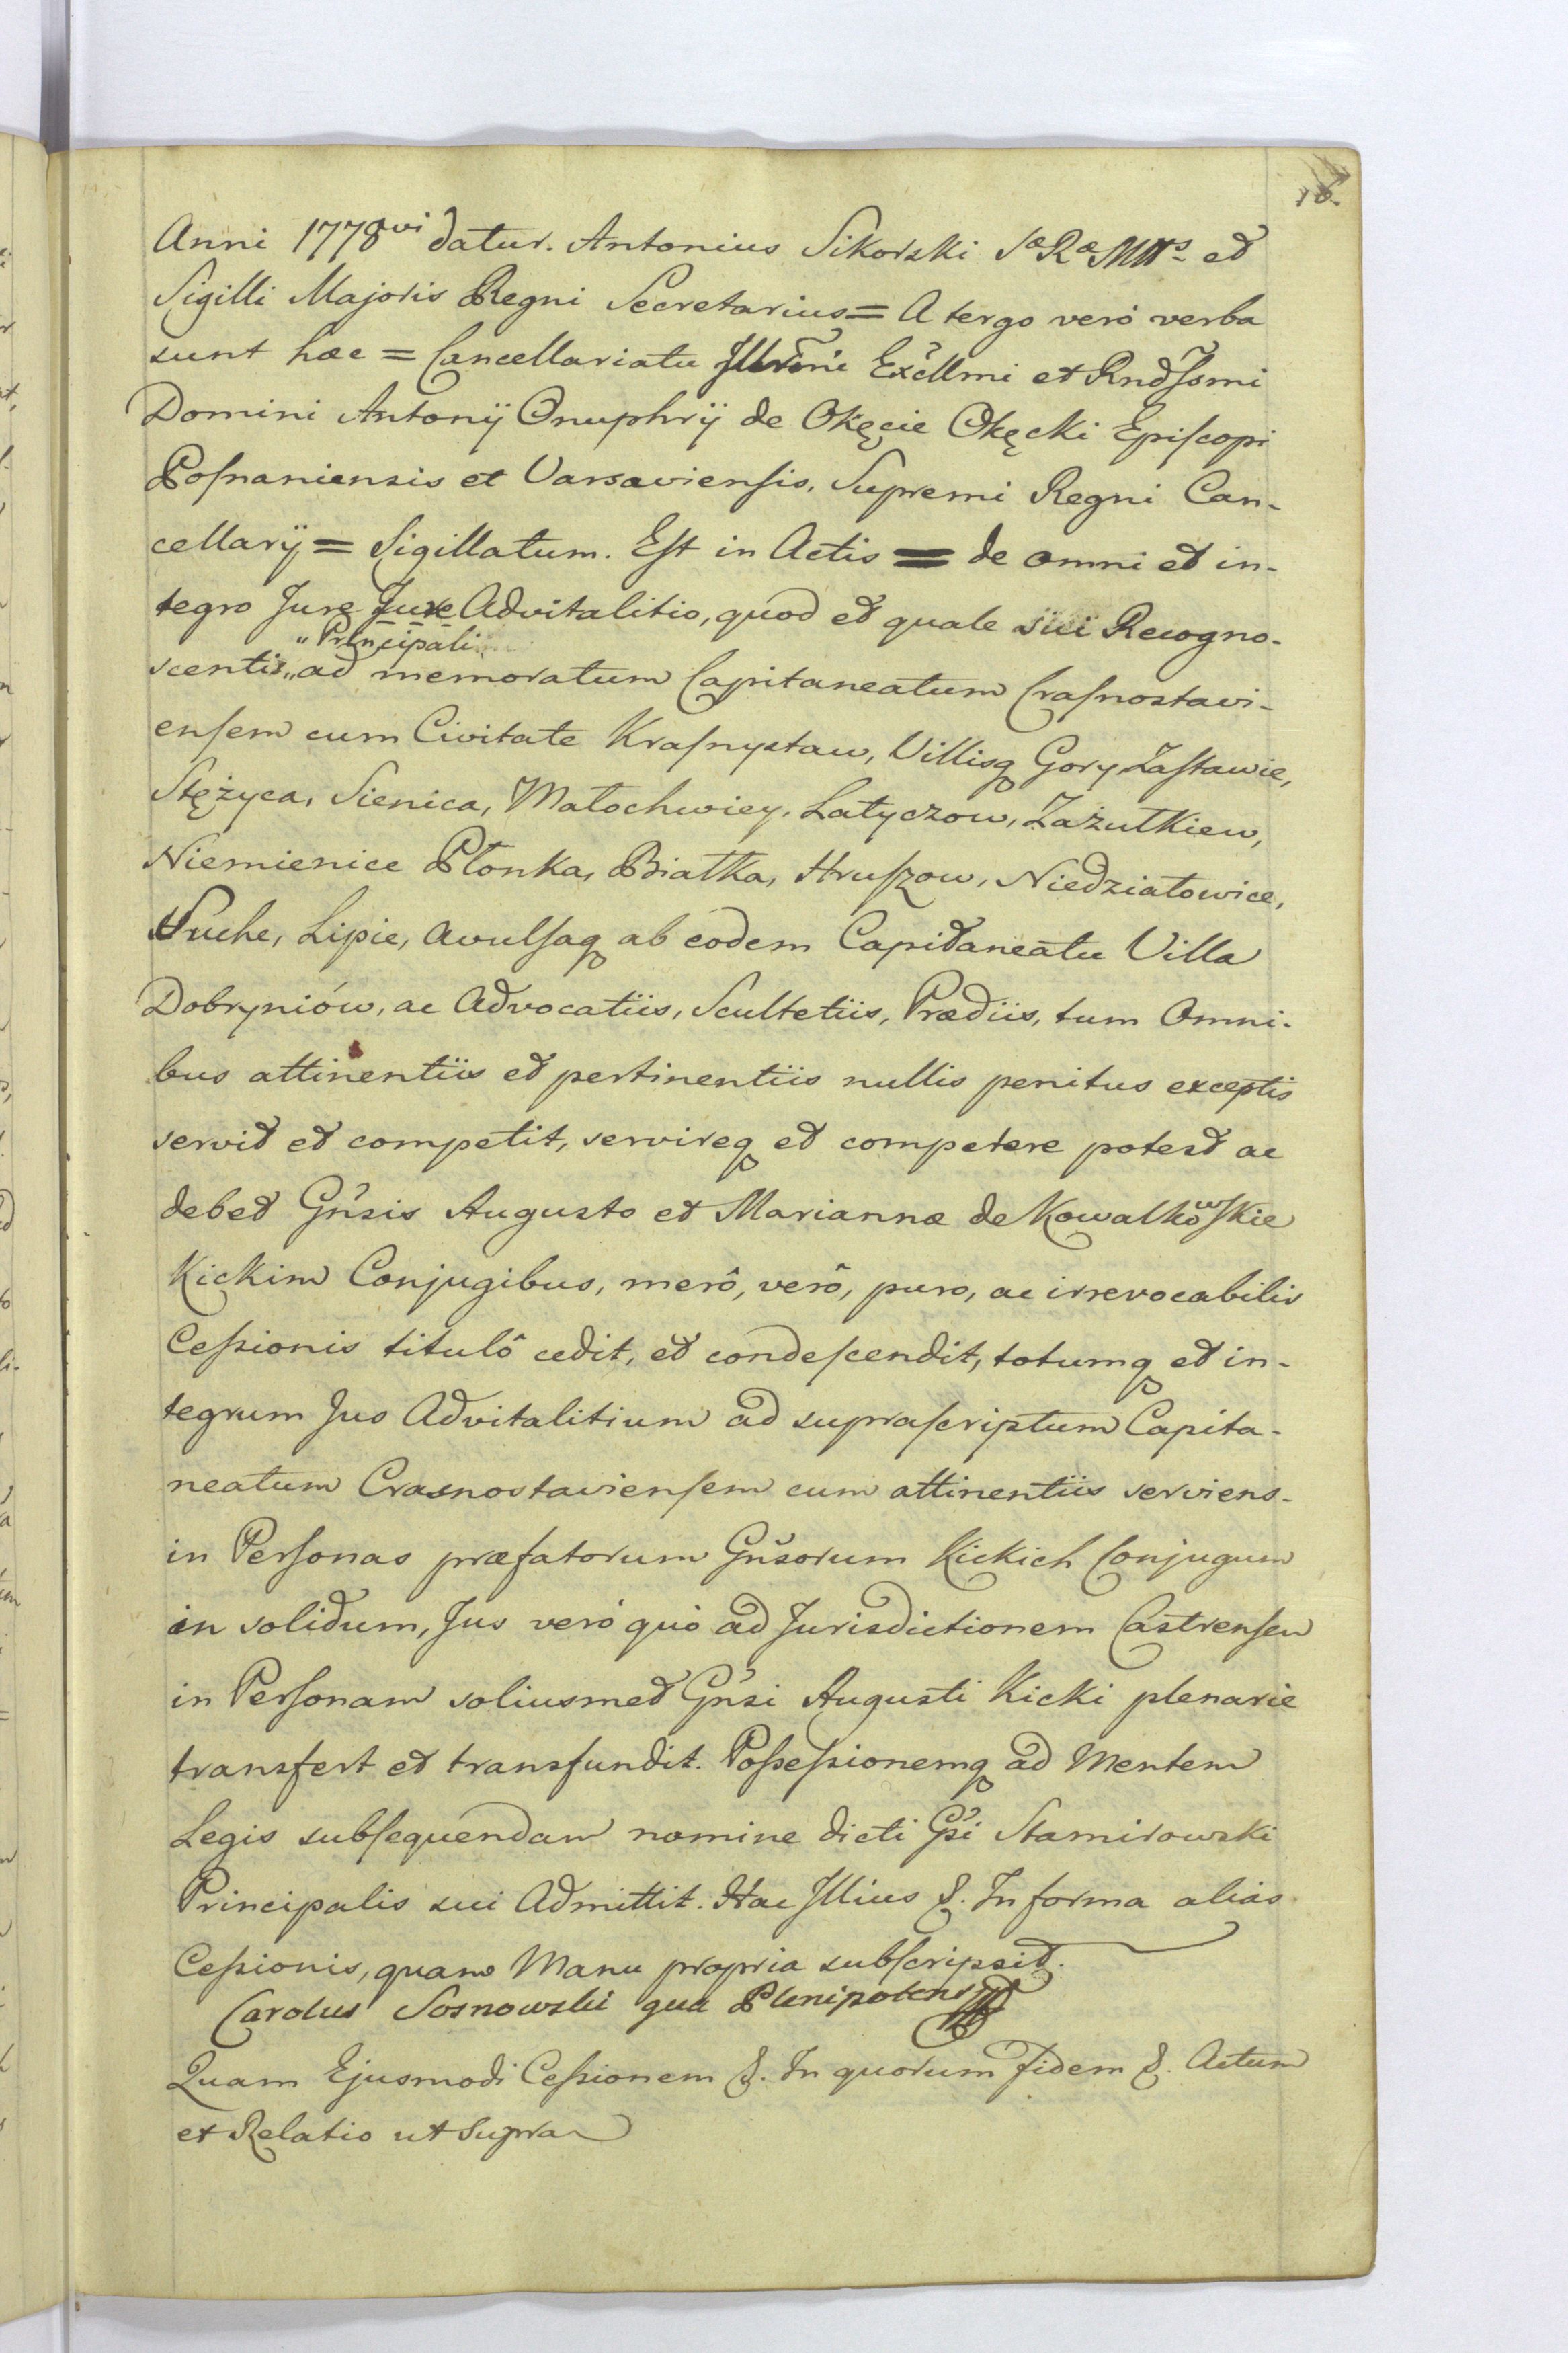 16.
Anni 1778vi datur. Antonius Sikorski SæRæMttis et
Sigilli Majoris Regni Secretarius = A tergo verò verba
sunt hæc = Cancellariatu Illrmi Excellmi et Rndssmi
Domini Antonij Onuphrij de Okęcie Okęcki Episcopi
Posnaniensis et Varsaviensis, Supremi Regni Can-
cellarij = Sigillatum. Est in Actis = de omni et in-
tegro Jure Juxe Advitalitio, quod et quale sui Recogno-
"Principali
scentis" ad memoratum Capitaneatum Crasnostavi-
ensem cum Civitate Krasnystaw, Villisq Gory, Zastawie,
Stężyca, Sienica, Małochwiey, Latyczow, Zażułkiew,
Niemienice Płonka, Białka, Hruszow, Niedziałowice,
Suche, Lipie, avulsaq ab eodem Capitaneatu Villa
Dobryniów, ac Advocatiis, Scultetiis, Prædiis, tum Omni-
bus attinentiis et pertinentiis nullis penitus exceptis
servit et competit, servireq et competere potest ac
debet Gn̄sis Augusto et Mariannæ de Kowalkowskie
Kickim Conjugibus, merô, verô, puro, ac irrevocabilis
Cessionis titulô cedit, et condescendit, totumq et in-
tegrum Jus Advitalitium ad suprascriptum Capita-
neatum Crasnostaviensem cum attinentiis serviens-
in Personas præfatorum Gn̄sorum Kickich Conjugum
in solidum, Jus verò quò ad Jurisdictionem Castrensem
in Personam soliusmet Gn̄si Augusti Kicki plenarie
transfert et transfundit. Possessionemq ad Mentem
Legis subsequendam nomine dicti Gsi Stamirowski
Principalis sui Admittit. Hac Illius &. In forma alias
Cessionis, quam Manu propria subscripsit.
Carolus Sosnowski qua Plenipotens
Quam Ejusmodi Cessionem &. In quorum fidem &. Actum
et Relatio ut Supra